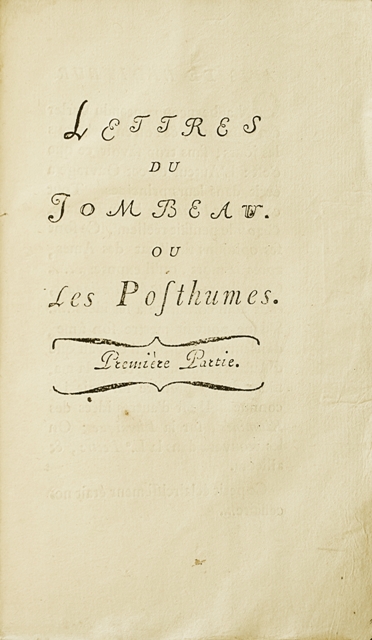 LETTRES
DU
TOMBEAU.
OU
Les Poſthumes.
Première Partie.